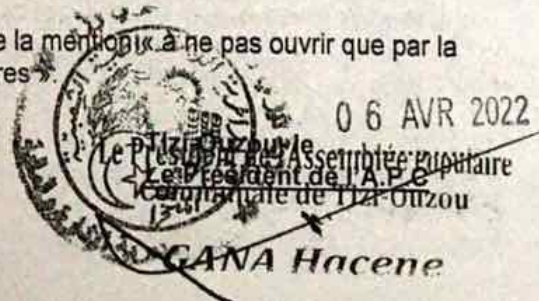 e la mention « à ne pas ouvrir que par la
res ».
0 6 AVR 2022
Tizi-Ouzou le
Le Président de l'Assemblée populaire
Le Président de l'A.P.C
Communale de Tizi-Ouzou
GANA Hacene